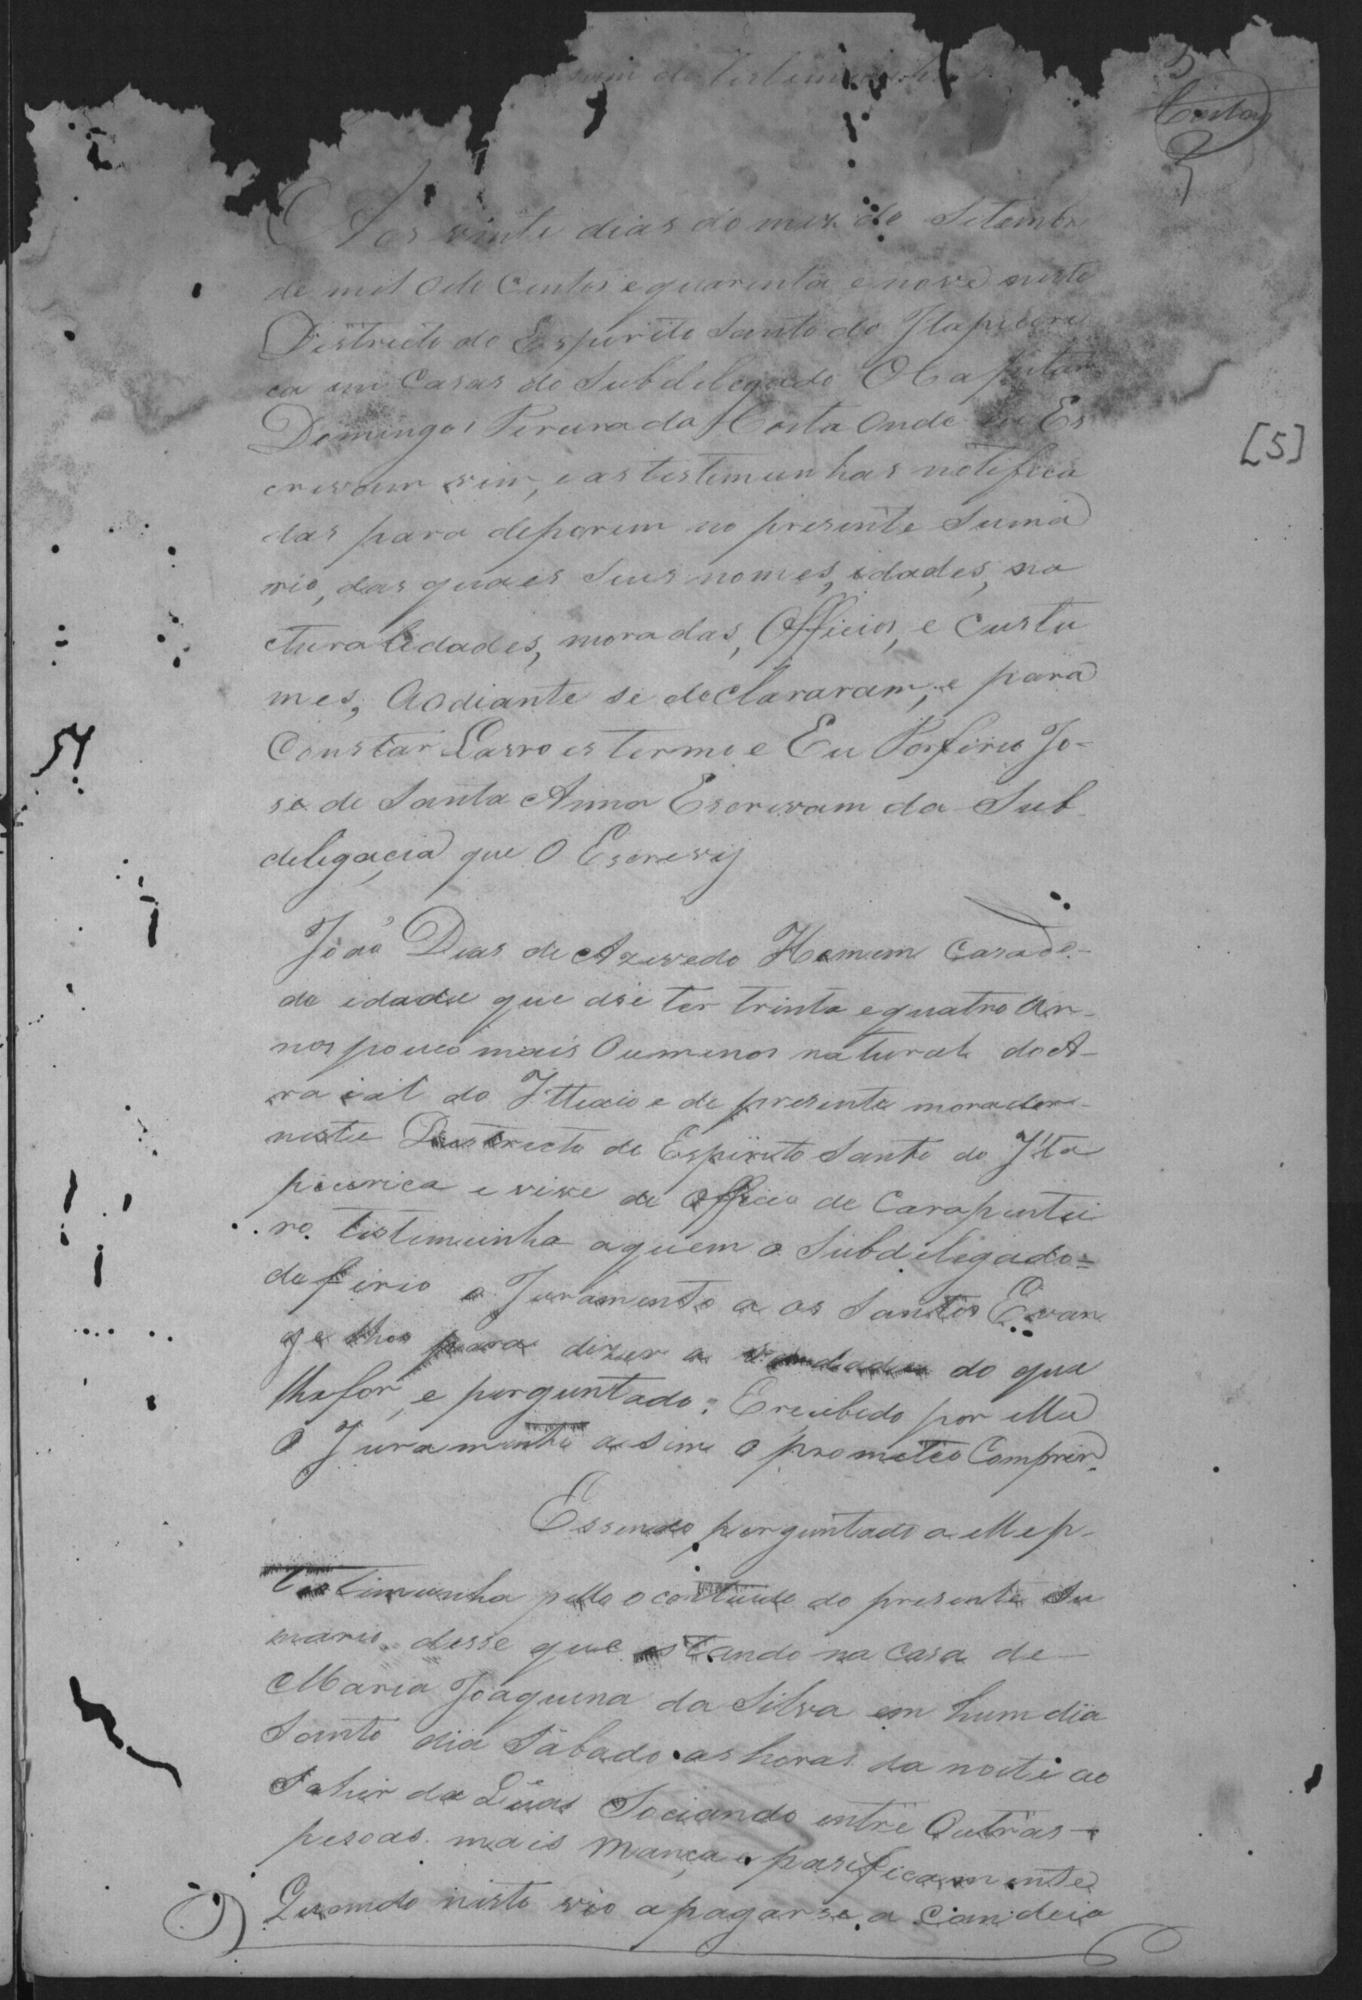 5
Costa
de Testemunhas
Aos vinte dias do mez de Setembro
de mil oito Centos e quarenta e nove neste
Districto do Espirito Santo do Itapicuru
ca em Casas do Subdelegado O Capitam
Domingos Pereira da Costa Onde eu Es
crivam vim, e as testimunhas notifica
das para deporem no prezente Suma
rio, das quaes Seus nomes, idades, na
cturalidades, moradas, Officios, e Custu
mes, Aodiante se declararam, e para
Constar Lavro es termo e Eu Porfirio Jo-
se de Santa Anna Escrivam da Sub
delegacia que O Escrevij
[5]
54
João Dias de Azevedo Homem Casado-
de idade que dise ter trinta e quatro an-
nos pouco mais Oumenos natural do A-
raial do e de prezente morador
neste Destricto do Espirito Santo do Ita
picurica e vive de Officio de Carapintei
ro. testimunha aquem o Subdelegado=
deferio o Juramento a os Santos Evan
gelhos para dizer a verdade do que
lhe for, e perguntado: E recebido por Elle
O Juramento asim o prometeo Comprir.
Essendo perguntado a Elle p-
testimunha pello o contiudo do presente Su
mario. desse que estando na Casa de
Maria Joaquina da Silva em hum dia
Santo dia Sabado as horas da noite ao
Sahir da Lua Sociando entre Outras
pesoas mais mança e pasificamente
Quando nisto vio apagarse a Candeia